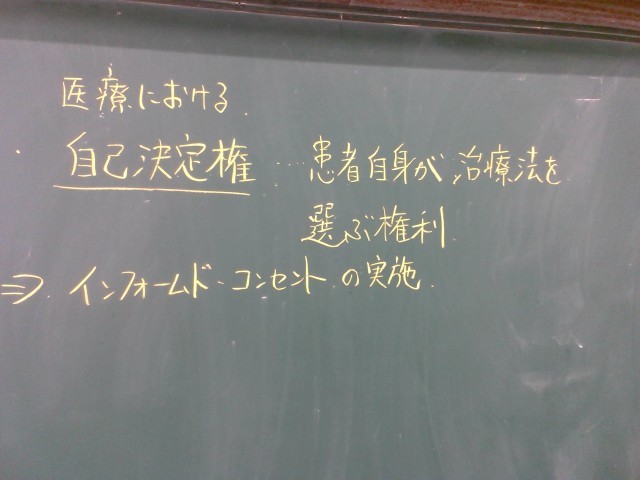 医療における
・自己決定権…患者自身が治療法を
選ぶ権利
⇒インフォームド・コンセントの実施